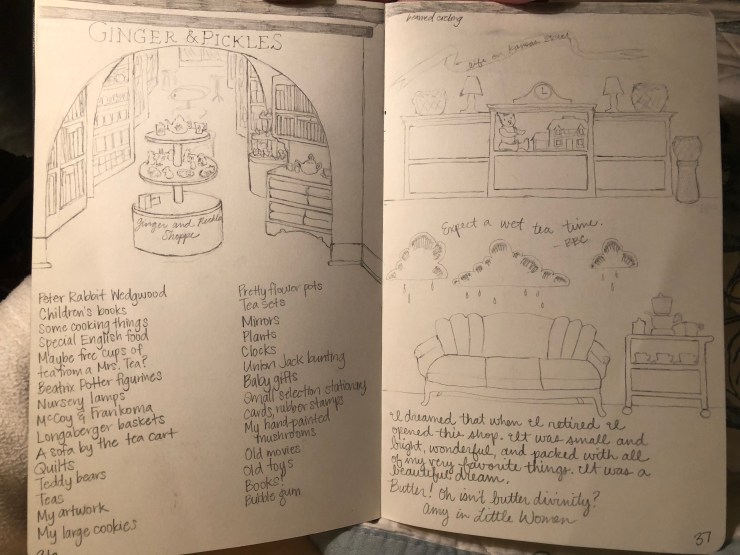 GINGER & PICKLES
Ginger and Pickles
Shoppe
Peter Rabbit Wedgwood
Children's books
Some cooking things
Special English food
Maybe free cups of
tea from a Mrs. Tea?
Beatrix Potter figurines
Nursery lamps
McCoy & Frankoma
Longaberger baskets
A sofa by the tea cart
Quilts
Teddy bears
Teas
My artwork
My large cookies
Pretty flower pots
Tea sets
Mirrors
Plants
Clocks
Union Jack bunting
Baby gifts
Small selection stationary
cards, rubber stamps
My hand-painted
mushrooms
Old movies
Old toys
Books!
Bubble gum
ceiling
L
Expect a wet tea time.
- BBC
I dreamed that when I retired I
opened this shop. It was small and
bright, wonderful, and packed with all
of my very favorite things. It was a
beautiful dream.
Butter! Oh isn't butter divinity?
Amy in Little Women
37